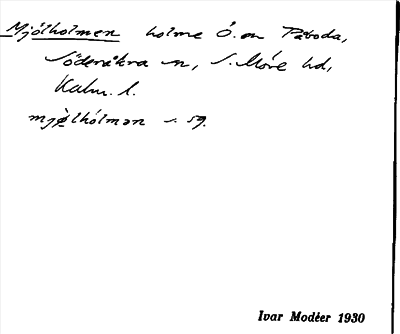 Mjölholmen holme Ö. om Påboda,
Söderåkra sn, S. Möre hd,
Kalm. l.
mjölhólmən s. sg.
Ivar Modéer 1930